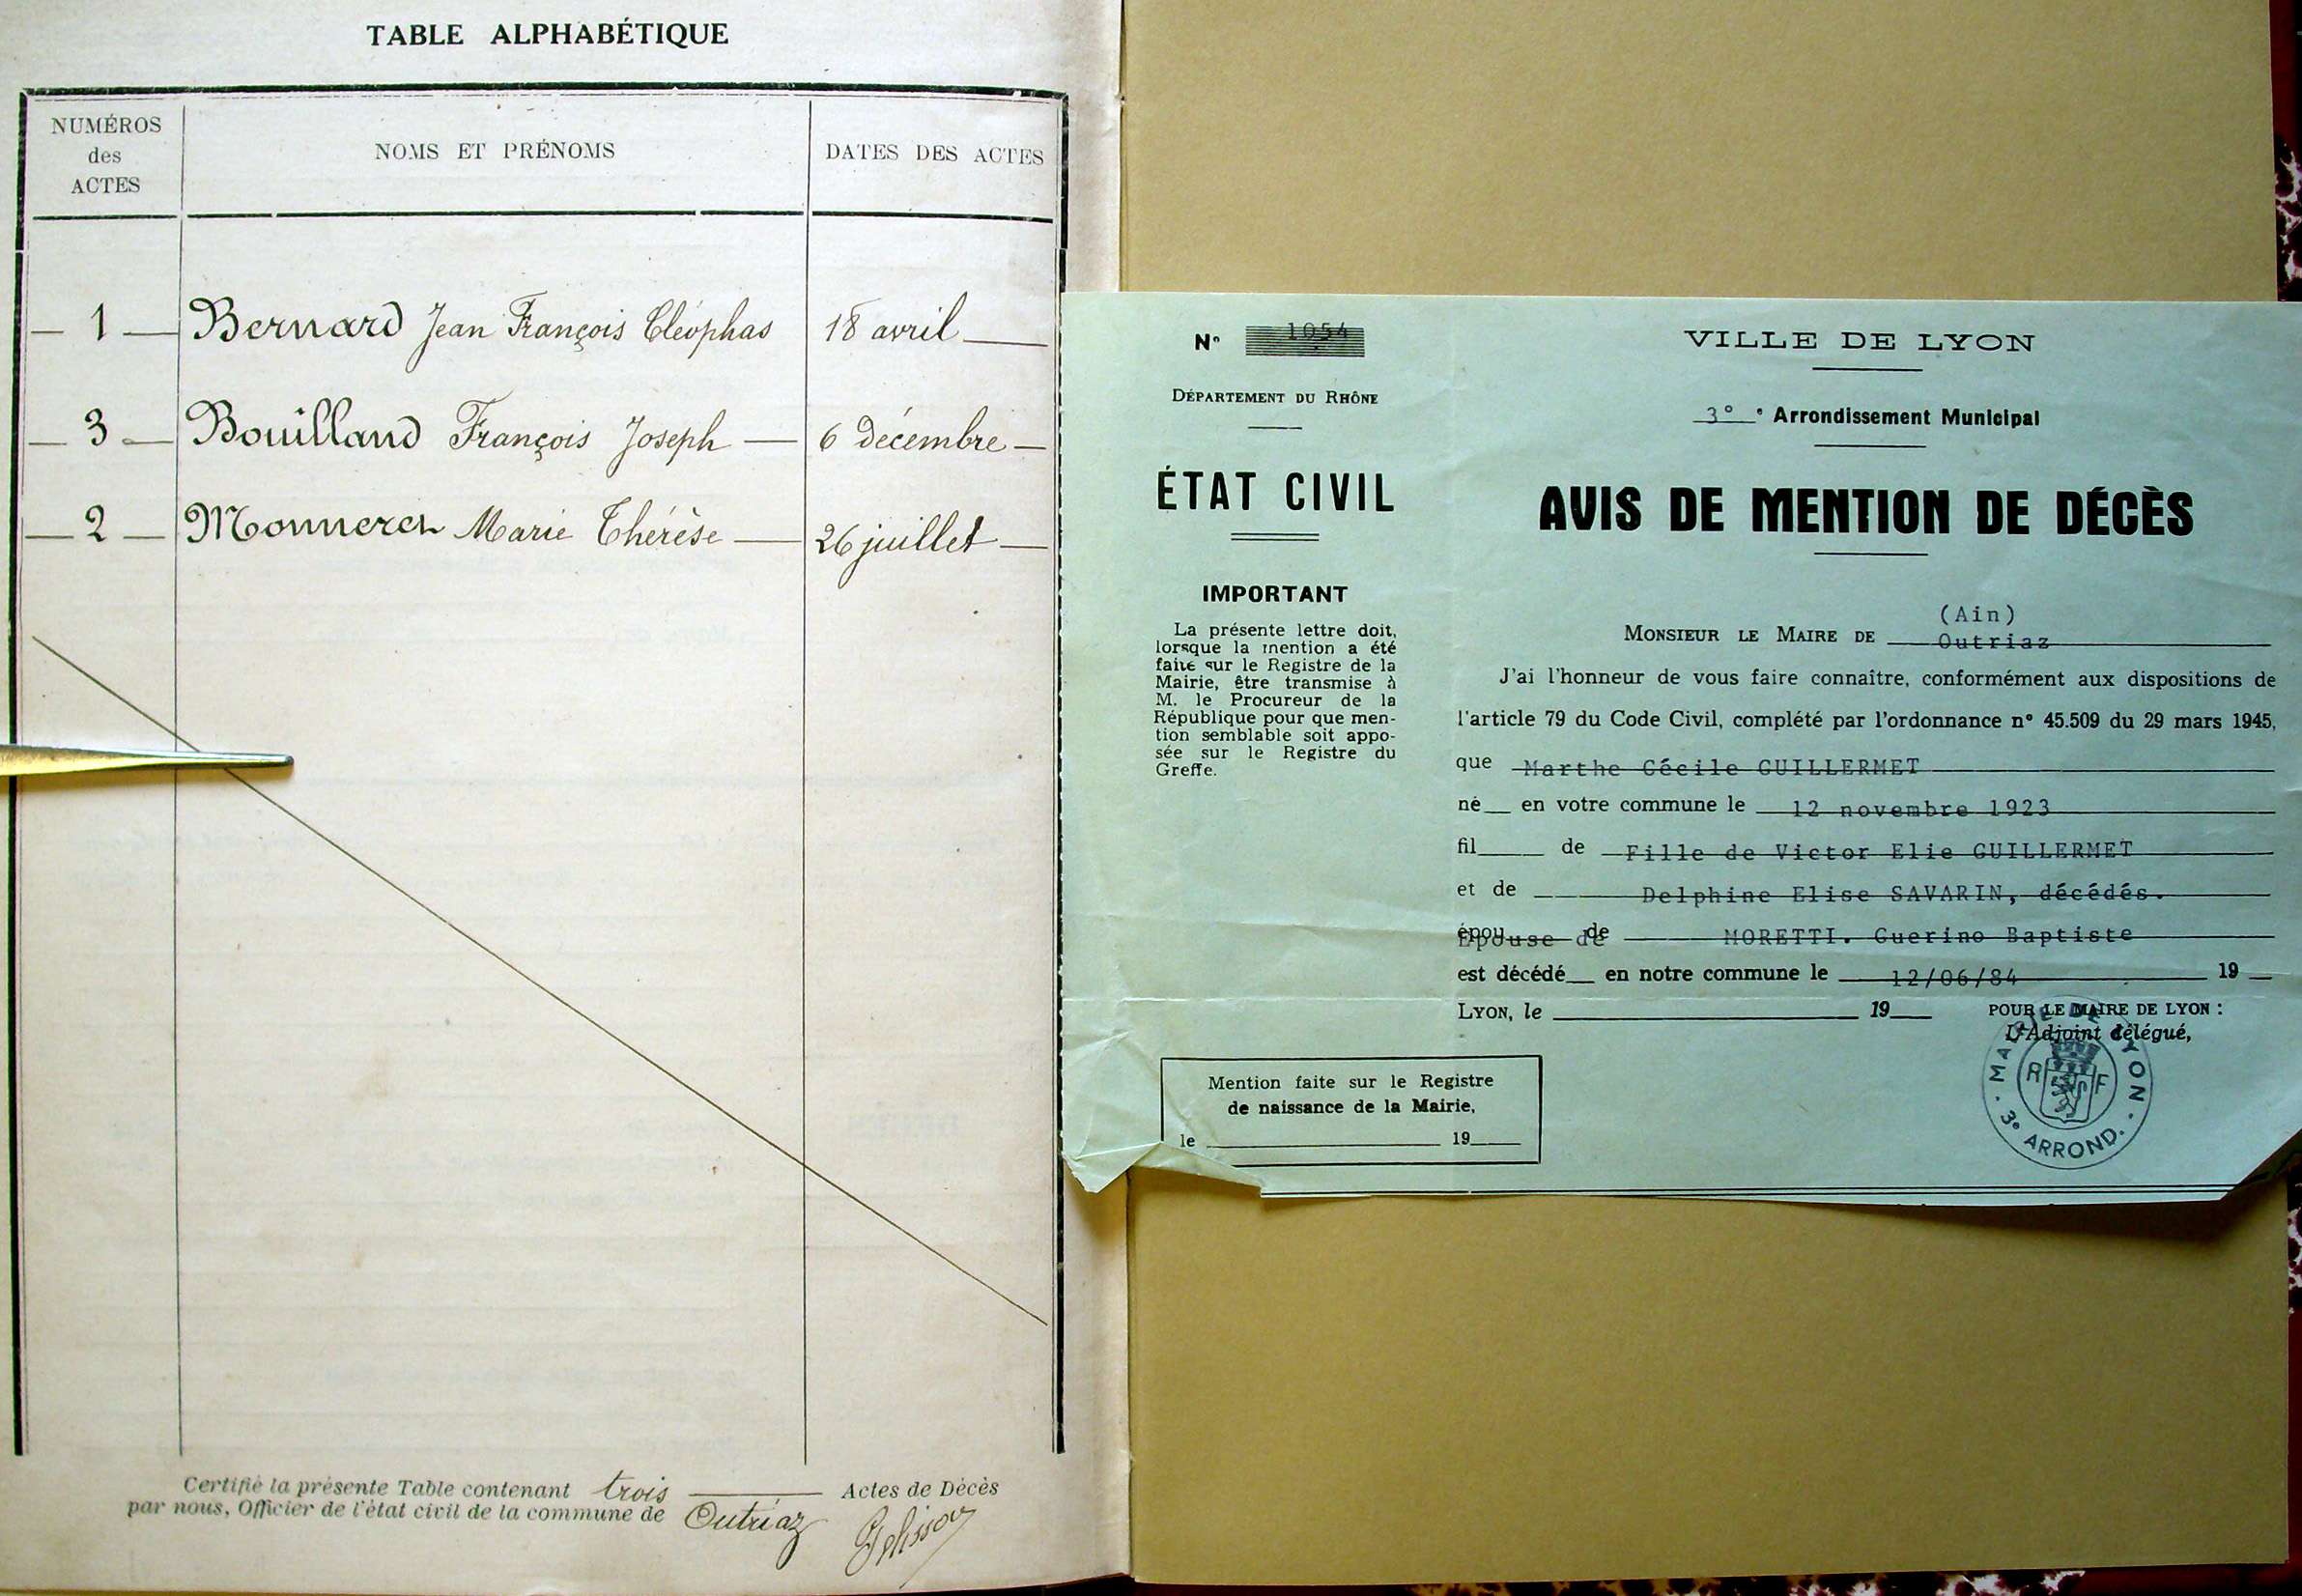 TABLE ALPHABÉTIQUE
NUMÉROS
des
ACTES
NOMS ET PRÉNOMS
DATES DES ACTES
1 Bernard Jean François Cléophas 18 avril
3 Bouilland François Joseph 6 décembre
2 Monneret Marie Thérèse 26 juillet
Certifié la présente Table contenant trois Actes de Décès
par nous, Officier de l'état civil de la commune de Outriaz
N° 1054
DÉPARTEMENT DU RHÔNE
ÉTAT CIVIL
IMPORTANT
La présente lettre doit,
lorsque la mention a été
faite sur le Registre de la
Mairie, être transmise à
M. le Procureur de la
République pour que men-
tion semblable soit appo-
sée sur le Registre du
Greffe.
Mention faite sur le Registre
de naissance de la Mairie,
le 19
VILLE DE LYON
3° e Arrondissement Municipal
AVIS DE MENTION DE DÉCÈS
(Ain)
MONSIEUR LE MAIRE DE Outriaz
J'ai l'honneur de vous faire connaître, conformément aux dispositions de
l'article 79 du Code Civil, complété par l'ordonnance n° 45.509 du 29 mars 1945,
que Marthe Cécile GUILLERMET
né en votre commune le 12 novembre 1923
fil de Fille de Victor Elie GUILLERMET
et de Delphine Elise SAVARIN, décédés.
épou de Epouse de MORETTI. Guerino Baptiste
est décédé en notre commune le 12/06/84 19
LYON, le 19 POUR LE MAIRE DE LYON :
L'Adjoint délégué,
MAIRIE DE LYON
R F
3e ARROND.